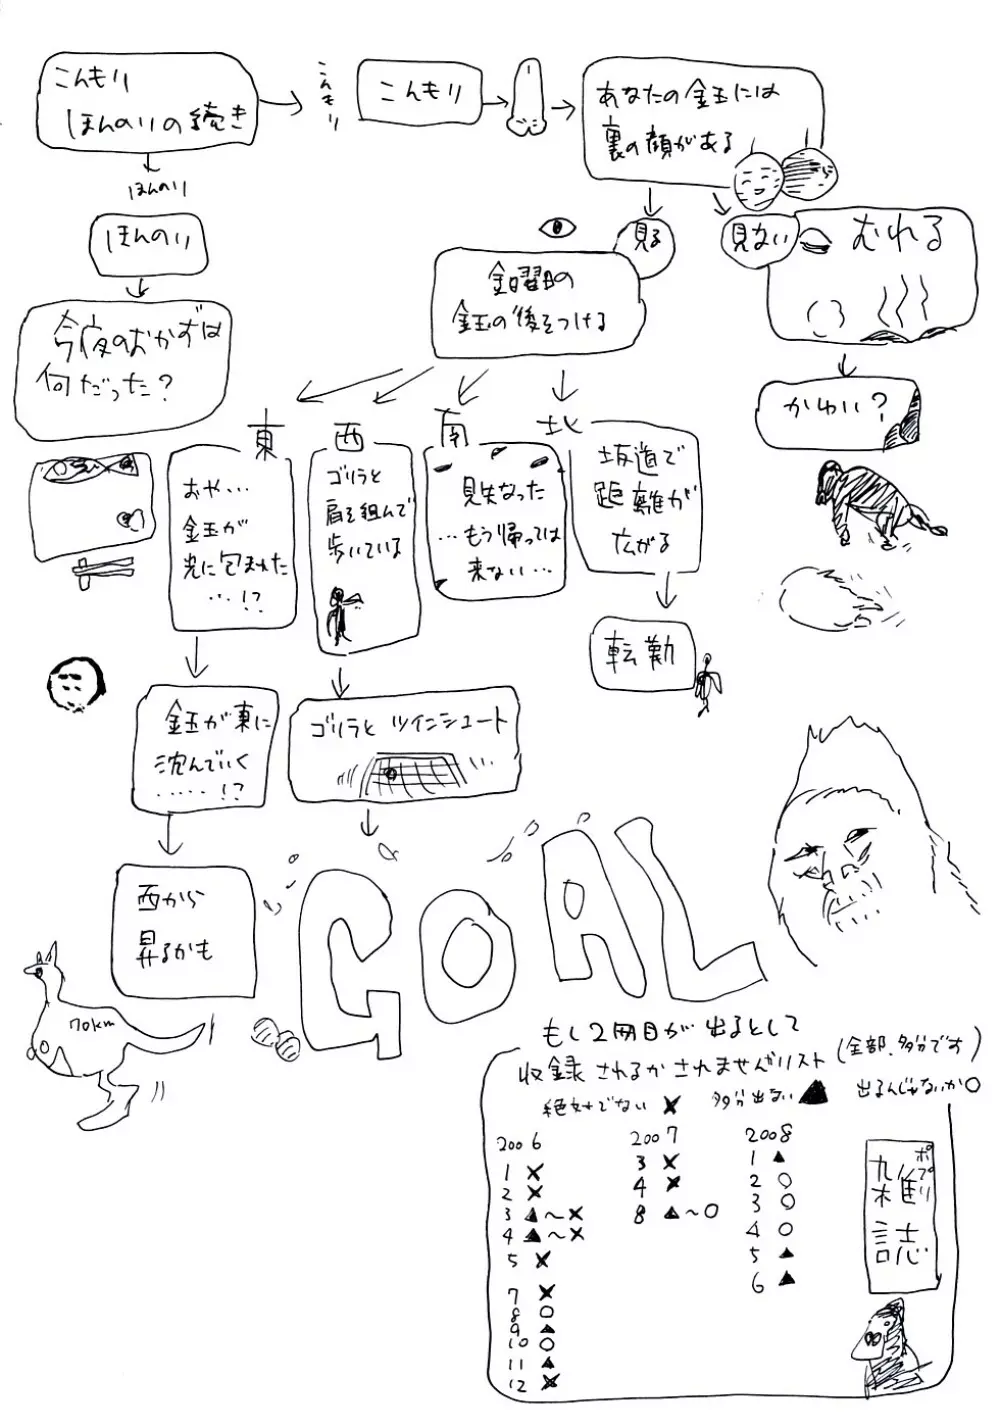 こんもり
ほんのりの続き
こんもり
こんもり
あなたの金玉には
裏の顔がある
ほんのり
ほんのり
見る
見ない
むれる
金曜日の
金玉の後をつける
今夜のおかずは
何だった?
かわいい?
東
西
南
北
おや…
金玉が
光に包まれた
…!?
ゴリラと
肩を組んで
歩いている
見失なった
…もう帰っては
来ない…
坂道で
距離が
広がる
転勤
金玉が東に
沈んでいく
.....!?
ゴリラと ツインシュート
西から
昇るかも
GOAL
70km
もし2冊目が出るとして
収録されるかされませんがリスト(全部、多分です)
絶対でない ✖ 多分出ない ▲ 出るんじゃないか ○
2006
1 ✖
2 ✖
3 ▲〜✖
4 ▲〜✖
5 ✖
7 ✖
8 ○
9 ▲
10 ○
11 ▲
12 ✖
2007
3 ✖
4 ✖
8 ▲〜○
2008
1 ▲
2 ○
3 ○
4 ○
5 ▲
6 ▲
ポプリ
雑誌